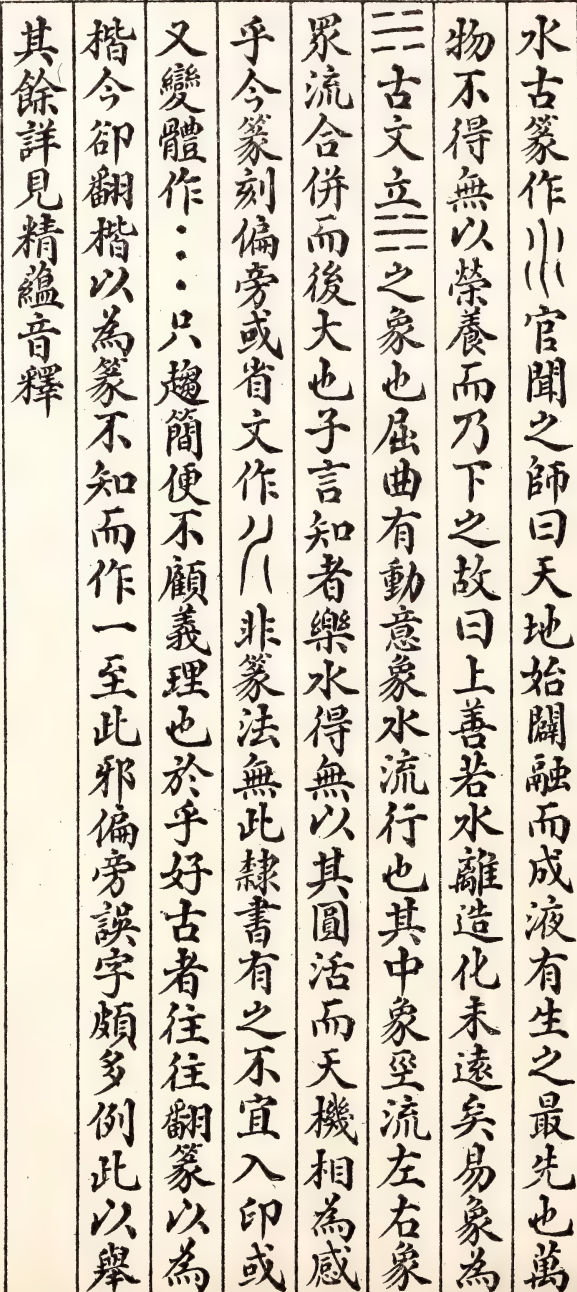 水古篆作官聞之師曰天地始闢融而成液有生之最先也萬
物不得無以榮養而乃下之故曰上善若水離造化未遠矣易象為
☵古文立☵之象也屈曲有動意象水流行也其中象坙流左右象
眾流合併而後大也子言知者樂水得無以其圓活而天機相為感
乎今篆刻偏旁或省文作非篆法無此隸書有之不宜入印或
又變體作只趨簡便不顧義理也於乎好古者往往翻篆以為
楷今卻翻楷以為篆不知而作一至此邪偏旁誤字頗多例此以舉
其餘詳見精蘊音釋